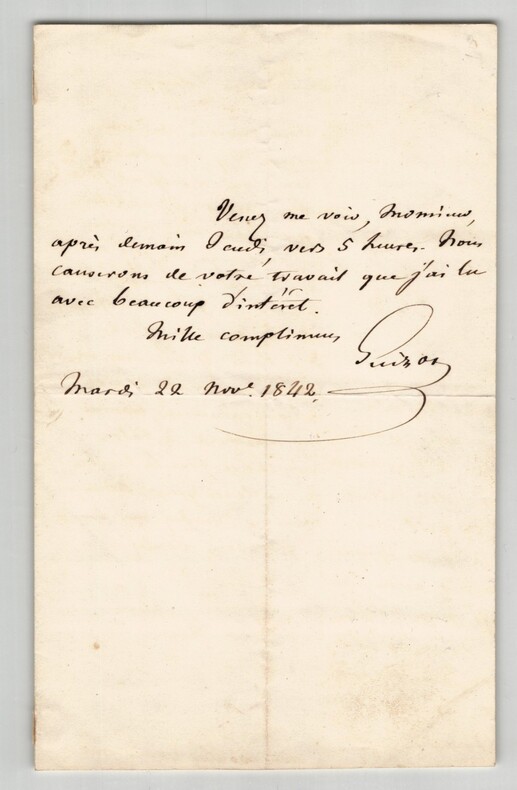 Venez me voir, Monsieur,
après demain Jeudi, vers 5 heures. Nous
causerons de votre travail que j'ai lu
avec beaucoup d'intéret.
Mille complimens
Guizot
Mardi 22 Nov.e 1842.